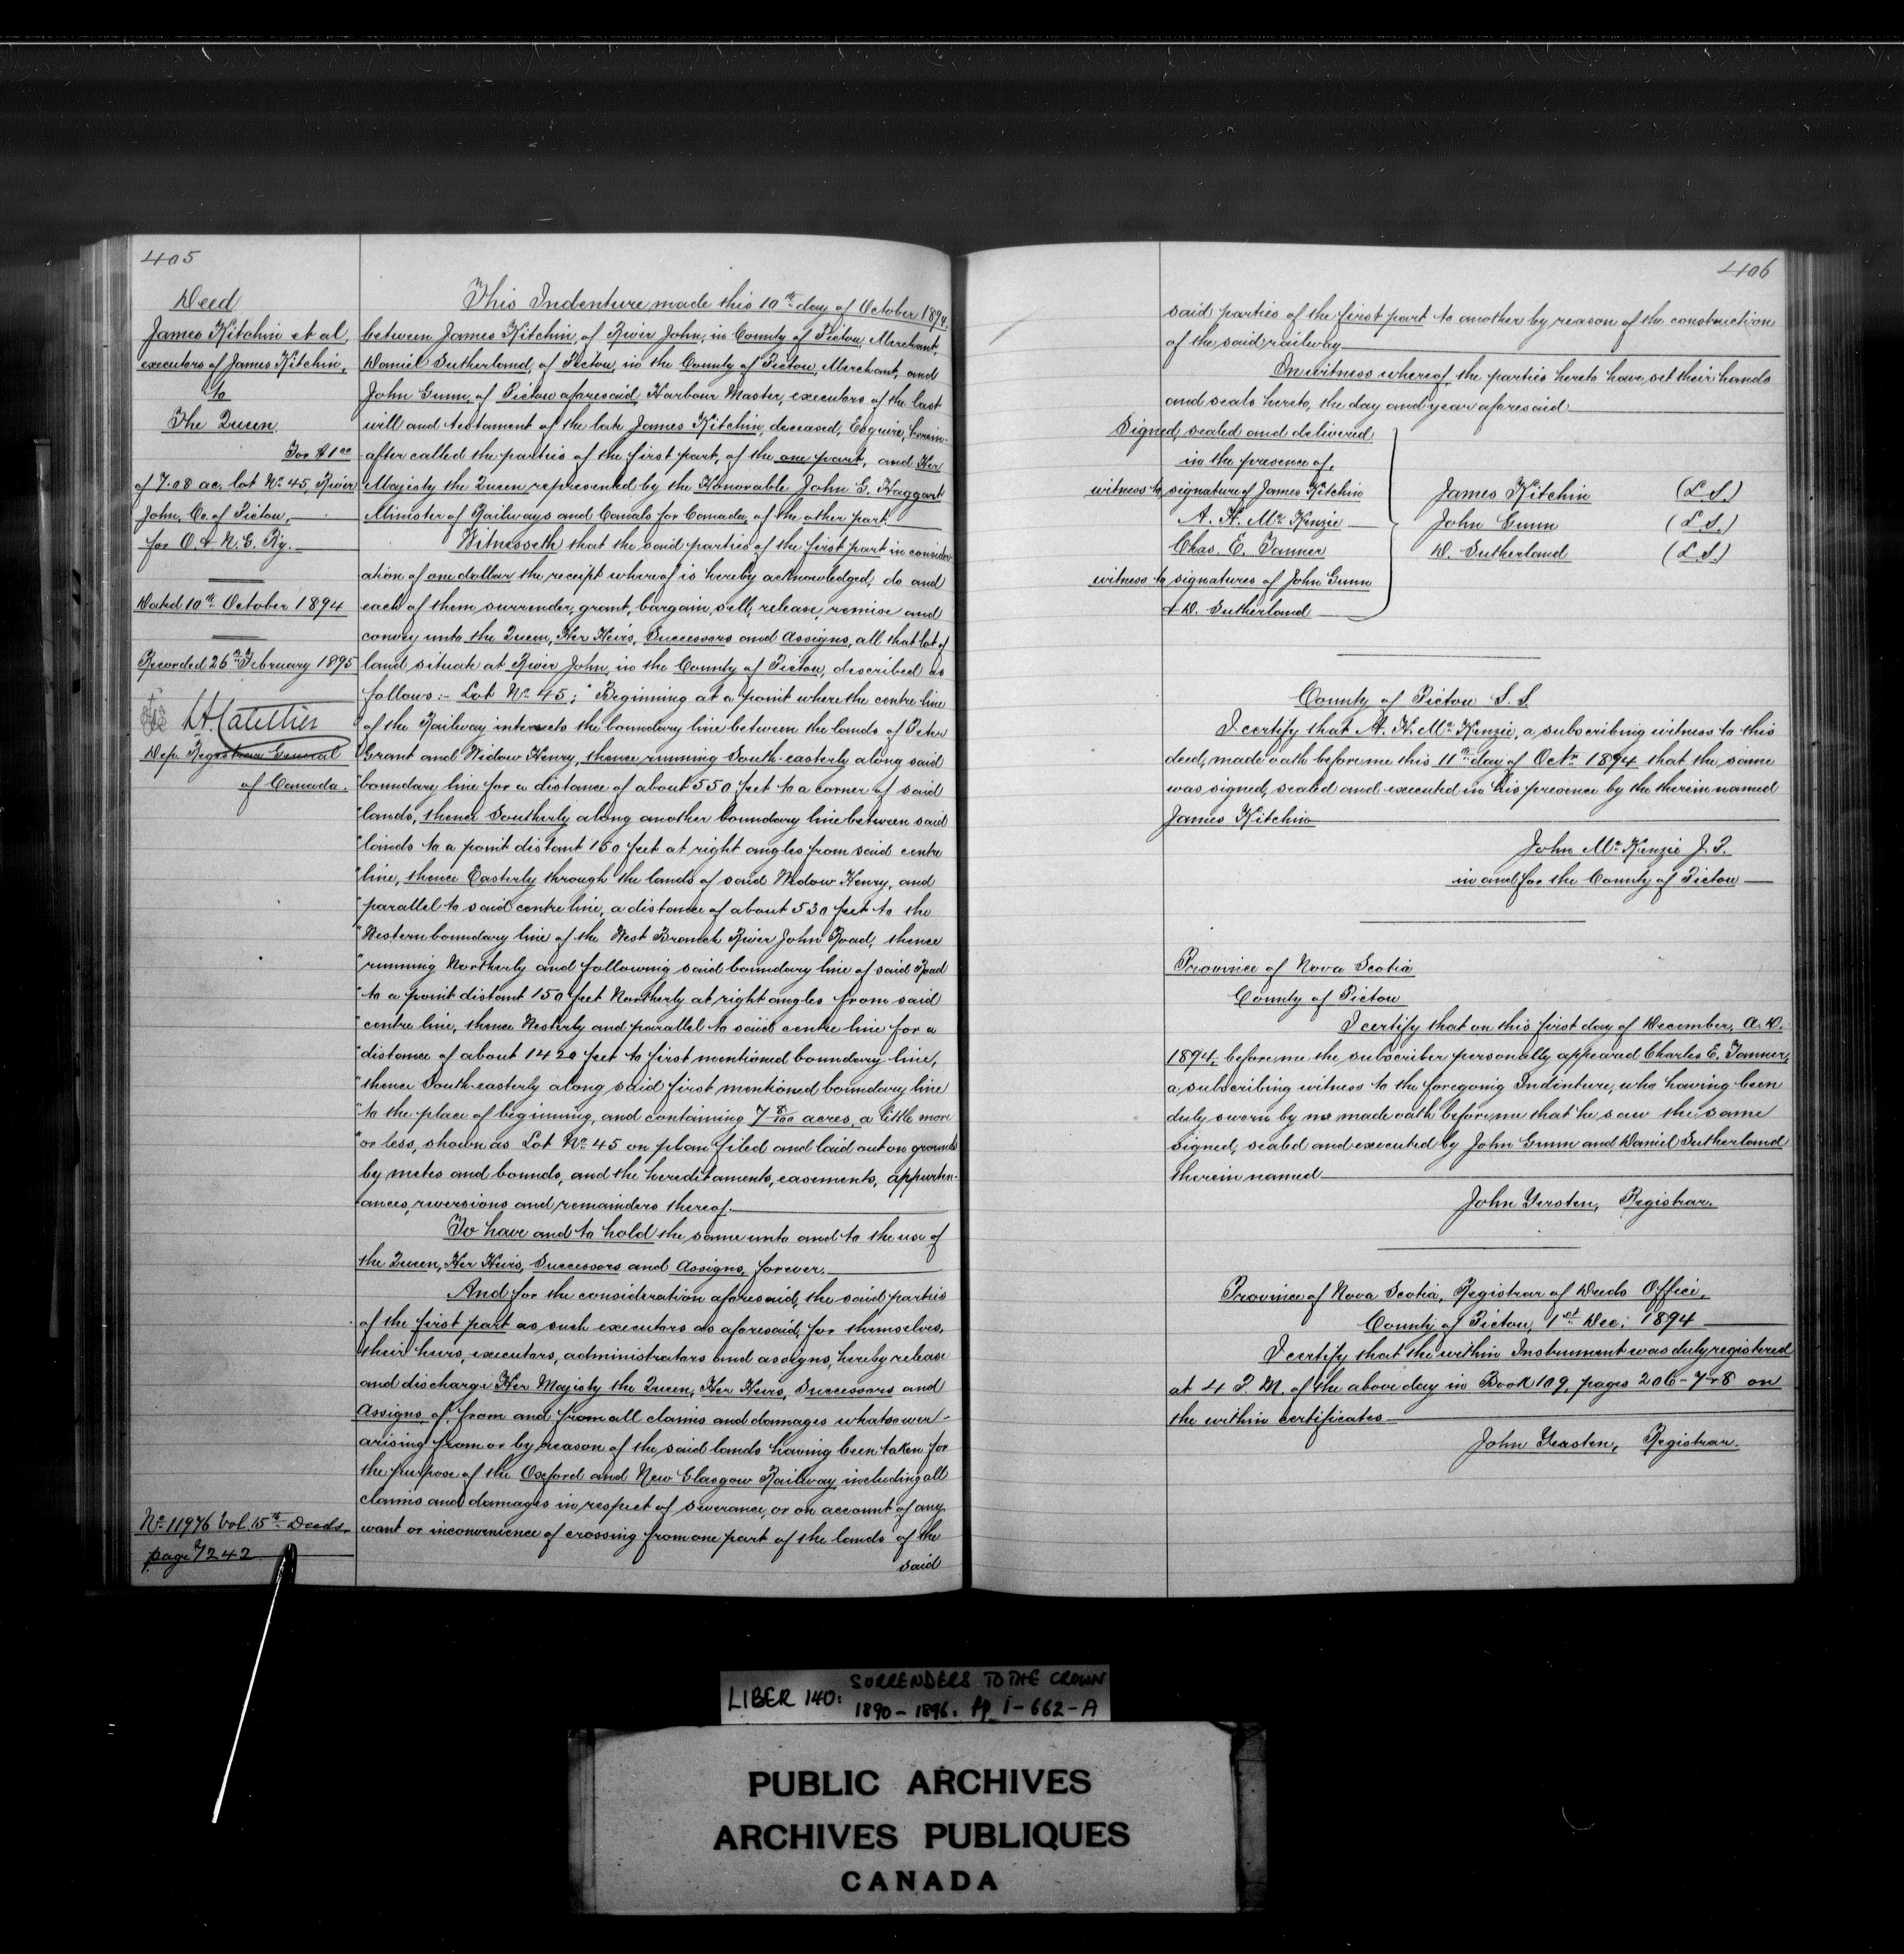 405
Deed
James Kitchin et al,
executors of James Kitchin,
to
The Queen.
For $1.00
of 7.08 ac. lot No. 45, River
John, Co. of Pictou,
for O. & N. G. Ry.
Dated 10th October 1894
Recorded 26th February 1895
Dep. Registrar General
of Canada.
No 11976 Vol. 15th Deeds
page 7242
This Indenture made this 10th day of October 1894,
between James Kitchin, of River John, in County of Pictou, Merchant,
Daniel Sutherland, of Pictou, in the County of Pictou, Merchant, and
John Gunn, of Pictou aforesaid, Harbour Master, executors of the last
will and testament of the late James Kitchin, deceased, Esquire, herein-
after called the parties of the first part, of the one part, and Her
Majesty the Queen, represented by the Honorable John G. Haggart
Minister of Railways and Canals for Canada, of the other part.
Witnesseth that the said parties of the first part in consider-
ation of one dollar the receipt whereof is hereby acknowledged, do and
each of them surrender, grant, bargain, sell, release, remise and
convey unto the Queen, Her Heirs, Successors and Assigns, all that lot of
land situate at River John, in the County of Pictou, described as
follows:- Lot No. 45; "Beginning at a point where the centre line
"of the Railway intersects the boundary line between the lands of Peter
"Grant and Widow Henry, thence running South-easterly along said
"boundary line for a distance of about 550 feet to a corner of said
"lands, thence Southerly along another boundary line between said
"lands to a point distant 150 feet at right angles from said centre
"line, thence Easterly through the lands of said Widow Henry, and
"parallel to said centre line, a distance of about 530 feet to the
"Western boundary line of the West Branch River John Road, thence
"running Northerly and following said boundary line of said Road
"to a point distant 150 feet Northerly at right angles from said
"centre line, thence Westerly and parallel to said centre line for a
"distance of about 1420 feet to first mentioned boundary line,
"thence South-easterly along said first mentioned boundary line
"to the place of beginning, and containing 7 8/100 acres, a little more
"or less, shown as Lot No. 45 on plan filed and laid out on ground
by metes and bounds, and the hereditaments, easements, appurten-
ances, reversions and remainders thereof.
To have and to hold the same unto and to the use of
the Queen, Her Heirs, Successors and Assigns, forever.
And for the consideration aforesaid, the said parties
of the first part as such executors as aforesaid, for themselves,
their heirs, executors, administrators and assigns, hereby release
and discharge Her Majesty the Queen, Her Heirs, Successors and
Assigns, of, from and from all claims and damages whatsoever
arising from or by reason of the said lands having been taken for
the purpose of the Oxford and New Glasgow Railway, including all
claims and damages in respect of severance, or on account of any
want or inconvenience of crossing from one part of the lands of the
said
406
said parties of the first part to another by reason of the construction
of the said railway
In witness whereof, the parties hereto have set their hands
and seals hereto, the day and year aforesaid
Signed, sealed and delivered
in the presence of,
witness to signature of James Kitchin
A. H. McKenzie
Chas. E. Tanner
witness to signatures of John Gunn
& D. Sutherland
James Kitchin (L.S.)
John Gunn (L.S.)
D. Sutherland (L.S.)
County of Pictou S.S.
I certify that A. H. McKenzie, a subscribing witness to this
deed, made oath before me this 11th day of Octr 1894, that the same
was signed, sealed and executed in his presence by the therein named
James Kitchin
John McKenzie J.P.
in and for the County of Pictou
Province of Nova Scotia
County of Pictou
I certify that on this first day of December, A.D.
1894, before me the subscriber personally appeared Charles E. Tanner,
a subscribing witness to the foregoing Indenture, who having been
duly sworn by me made oath before me that he saw the same
signed, sealed and executed by John Gunn and Daniel Sutherland
therein named
John Registrar.
Province of Nova Scotia, Registrar of Deeds Office,
County of Pictou, 1st Dec: 1894
I certify that the within Instrument was duly registered
at 4 P.M. of the above day in Book 109, pages 206-7-8 on
the within certificates
John Registrar.
LIBER 140: SURRENDERS TO THE CROWN
1890-1896. pp I-662-A
PUBLIC ARCHIVES
ARCHIVES PUBLIQUES
CANADA